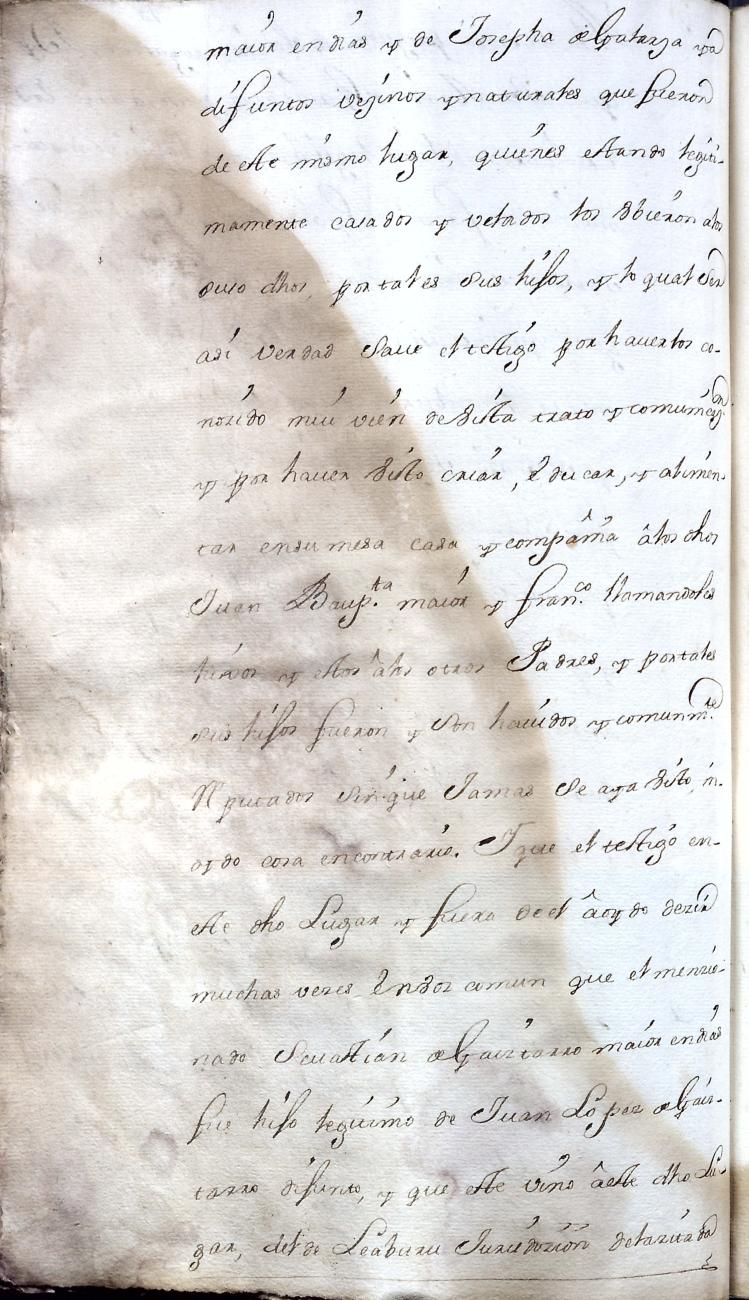 maior en dias y de Josepha de Gatarza ya
difuntos vezinos y naturales que fueron
de este mismo lugar, quienes estando legiti-
mamente casados y velados los Vbieron a los
suso dhos, por tales sus hijos, y lo qual Ser
asi verdad Saue el testigo por hauerlos co-
nozido mui vien de Vista trato y comunicazn.
y por hauer Visto criar, educar, y alimen-
tar en su mesa casa y compañia â los dhos
Juan Baupta. maior y Franco. llamandoles
hixos y estos â los otros Padres, y por tales
sus hijos fueron y Son hauidos y comunmte.
Rputados Sin que Jamas Se aya Visto, ni
oydo cosa en contrario. Y que el testigo en-
este dho Lugar y fuera de el â oydo dezir
muchas vezes en voz comun que el menzio-
nado Seuastian de Gaiztarro maior en dias
fue hijo legitimo de Juan Lopez de Gaiz-
tarro difunto, y que este vino â este dho Lu-
gar, del de Leaburu Jurisdizion de la ziudad